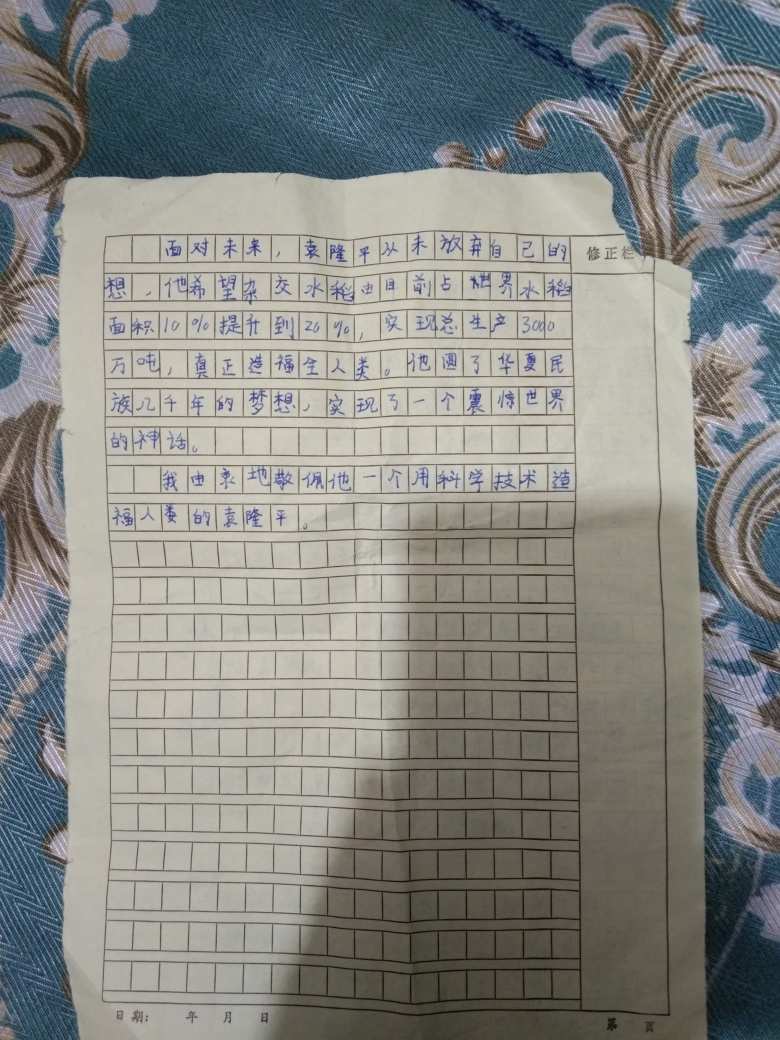 面对未来，袁隆平从未放弃自己的
修正栏
想，他希望杂交水稻由目前占世界水稻
面积10%提升到20%，实现总生产3000
万吨，真正造福全人类。他圆了华夏民
族几千年的梦想，实现了一个震惊世界
的神话。
我由衷地敬佩他一个用科学技术造
福人类的袁隆平。
日期： 年 月 日
第 页